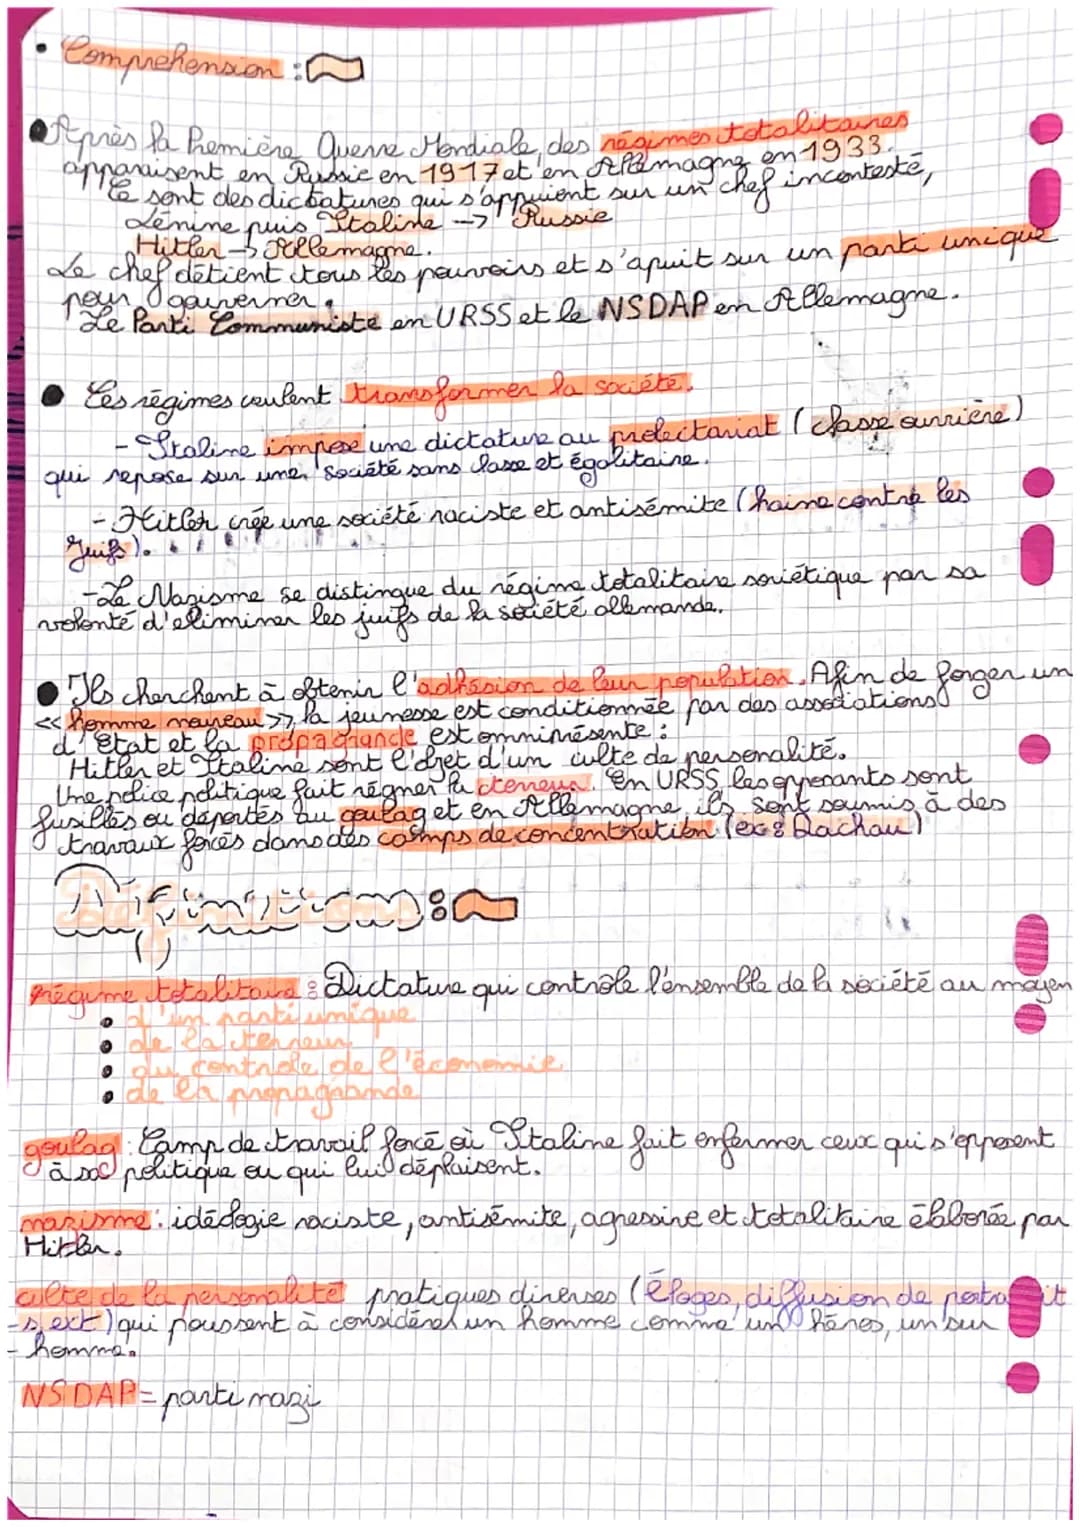 • Comprehension :
Après la Première Guerre Mondiale, des régimes totalitaires
apparaisent en Russie en 1917 et en Allemagne en 1933.
Ce sont des dictatures qui s'appuient sur un chef incontesté,
Lénine puis Staline -> Russie
Hitler -> Allemagne.
Le chef détient tous les pouvoirs et s'apuit sur un parti unique
pour gouverner.
Le Parti Communiste en URSS et le NSDAP en Allemagne.
Ces régimes veulent transformer la société.
- Staline impose une dictature au prolectariat (classe ouvrière)
qui repose sur une société sans classe et égalitaire.
- Hitler crée une société raciste et antisémite (haine contre les
Juifs).
- Le Nazisme se distingue du régime totalitaire soviétique par sa
volonté d'eliminer les juifs de la société allemande.
Ils cherchent à obtenir l'adhésion de leur population. Afin de forger un
<< homme nouveau >>, la jeunesse est conditionnée par des associations
d'Etat et la propagrande est omniprésente :
Hitler et Staline sont l'objet d'un culte de personalité.
Une police politique fait régner la terreur. En URSS, les opposants sont
fusillés ou déportés au goulag et en Allemagne, ils sont soumis à des
travaux forcés dans des camps de concentration (ex : Dachau)
Définitions :
régime totalitaire : Dictature qui contrôle l'ensemble de la société au moyen
• d'un parti unique
• de la terreur
• du controle de l'économie
• de la propagrande
goulag : Camp de travail forcé où Staline fait enfermer ceux qui s'opposent
à sa politique ou qui lui déplaisent.
nazisme : idéologie raciste, antisémite, agressive et totalitaire élaborée par
Hitler.
culte de la personalité pratiques diverses (éloges, diffusion de portrait
-s, ext) qui poussent à considérer un homme comme un héros, un sur
- homme.
NSDAP = parti nazi